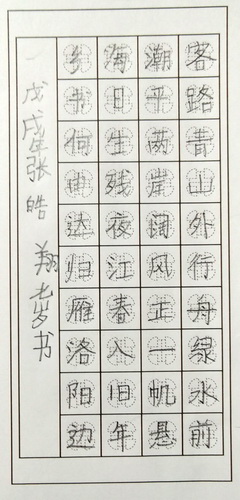 客路青山外行舟绿水前
潮平两岸阔风正一帆悬
海日生残夜江春入旧年
乡书何由达归雁洛阳边
戊戌年张皓翔七岁书